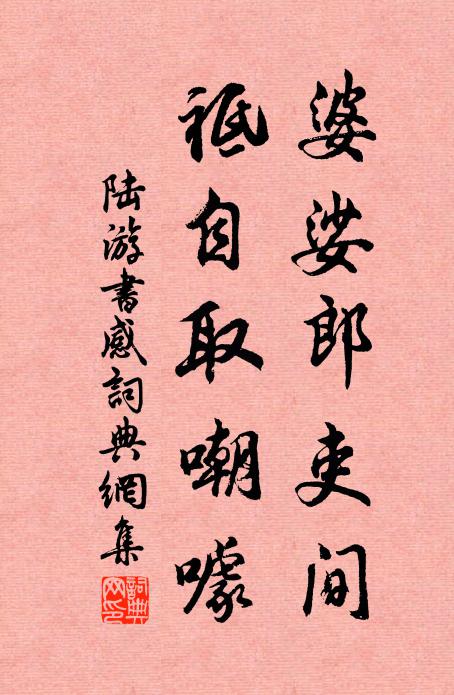 婆娑郎吏间
祗自取嘲噱
陆游书感词典網集
詞典网印